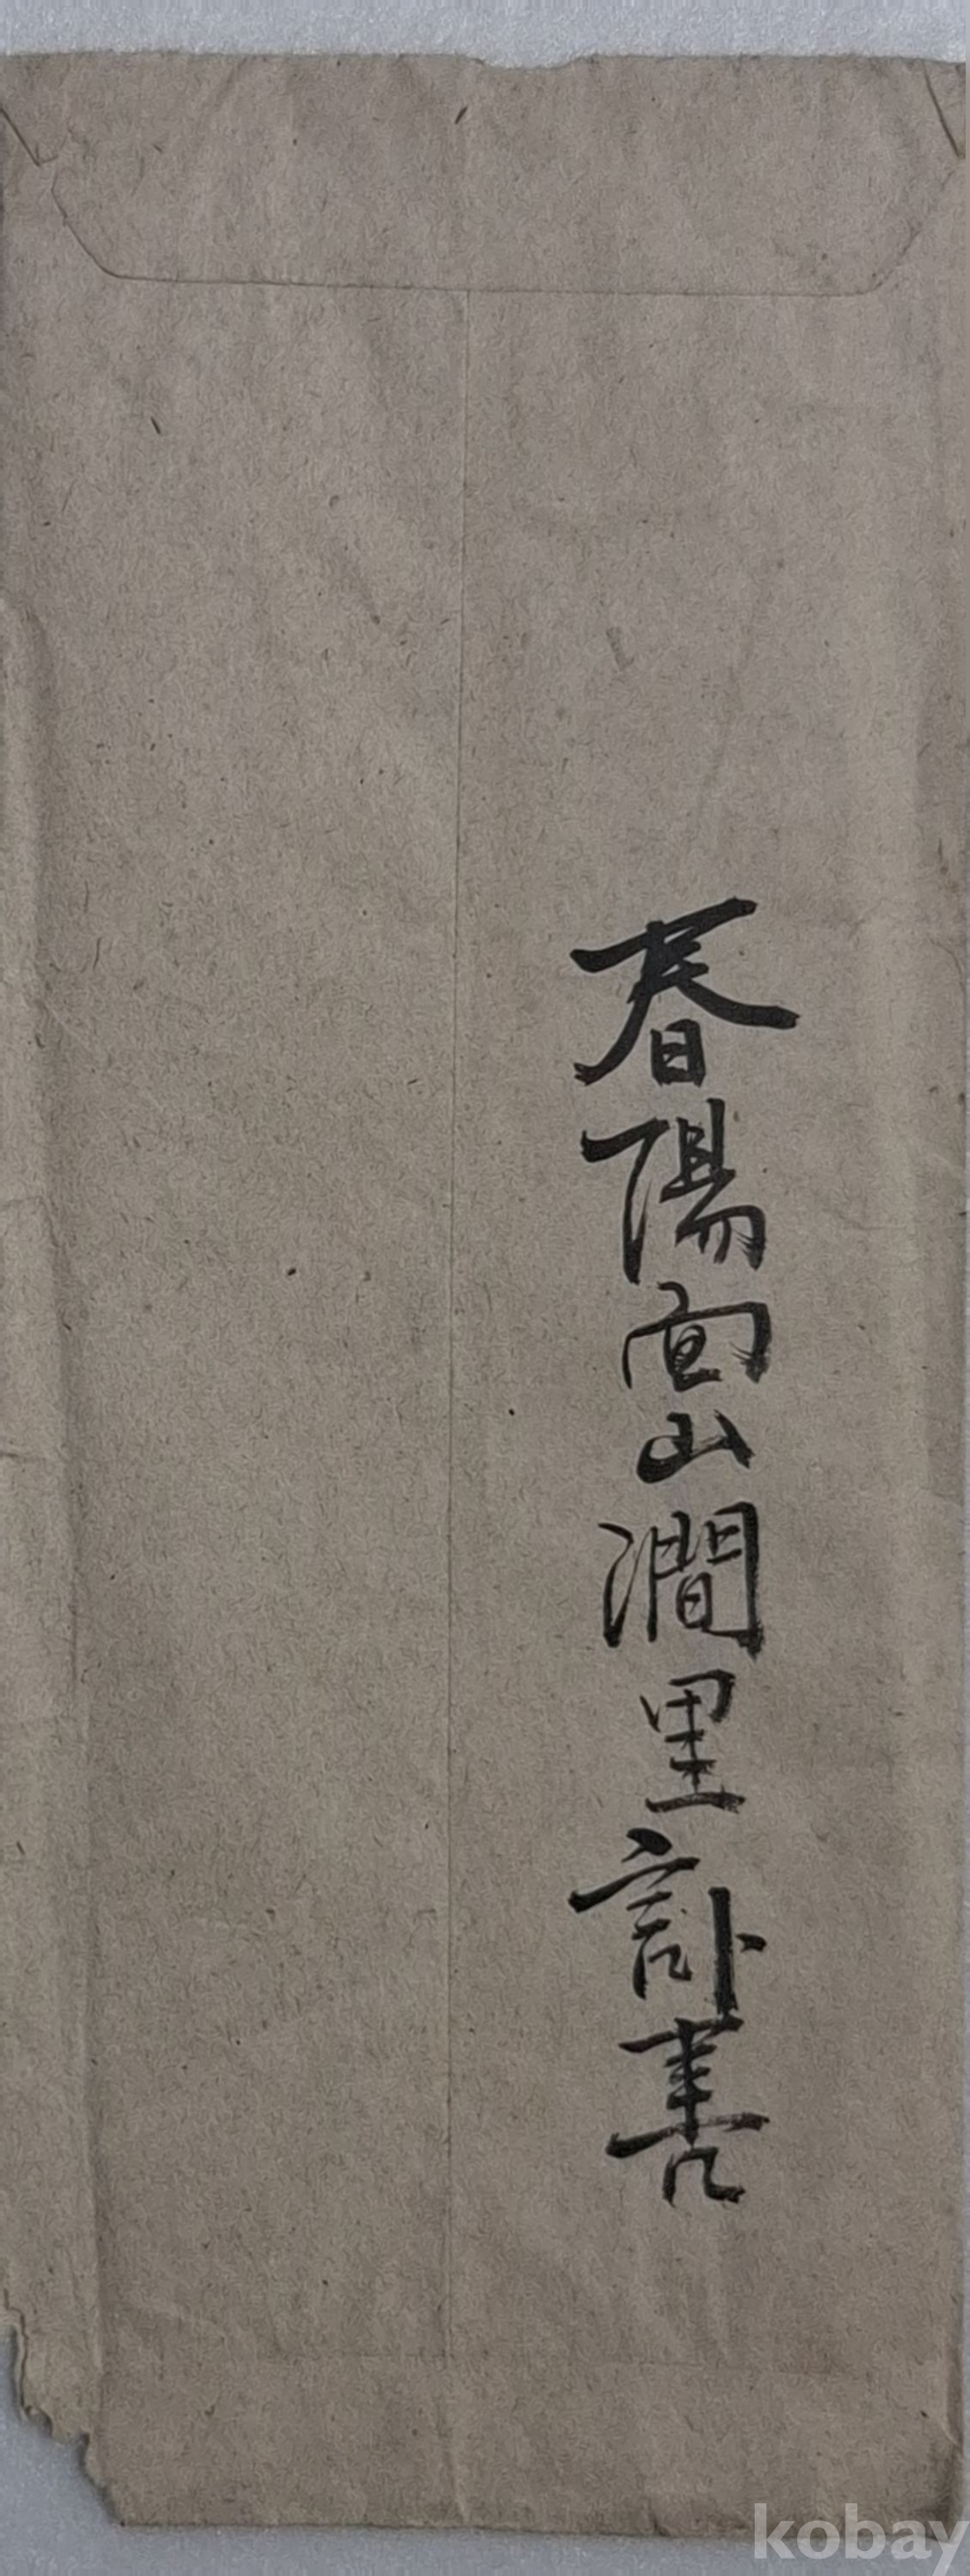 春陽面山澗里訃書
kobay